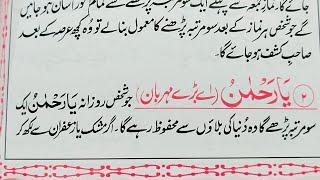 جائے گا۔ نماز جمعہ سے پہلے ایک سو مرتبہ پڑھنے سے تمام کام آسان ہو جائیں
گے جو شخص ہر نماز کے بعد سو مرتبہ پڑھنے کا معمول بنا لے تو وہ کچھ عرصہ کے بعد
صاحبِ کشف ہو جائے گا۔
۲ یَا رَحْمٰنُ (اے بڑے مہربان) جو شخص روزانہ یَا رَحْمٰنُ ایک
سو مرتبہ پڑھے گا وہ دُنیا کی بلاؤں سے محفوظ رہے گا۔ اگر مشک و زعفران سے لکھ کر